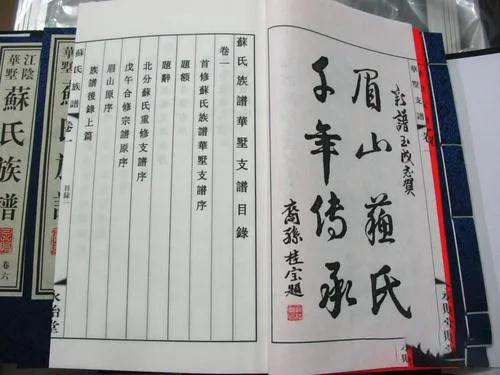 華墅支譜
新譜玉成志賀
眉山蘇氏
千年傳承
裔孫桂宝題
蘇氏族譜華墅支譜目錄
卷一
首修蘇氏族譜華墅支譜序
題額
題辭
北分蘇氏重修支譜序
戊午合修宗譜原序
眉山原序
族譜後錄上篇
蘇氏族譜 卷一 目錄一
江陰
華墅
蘇氏族譜
卷六